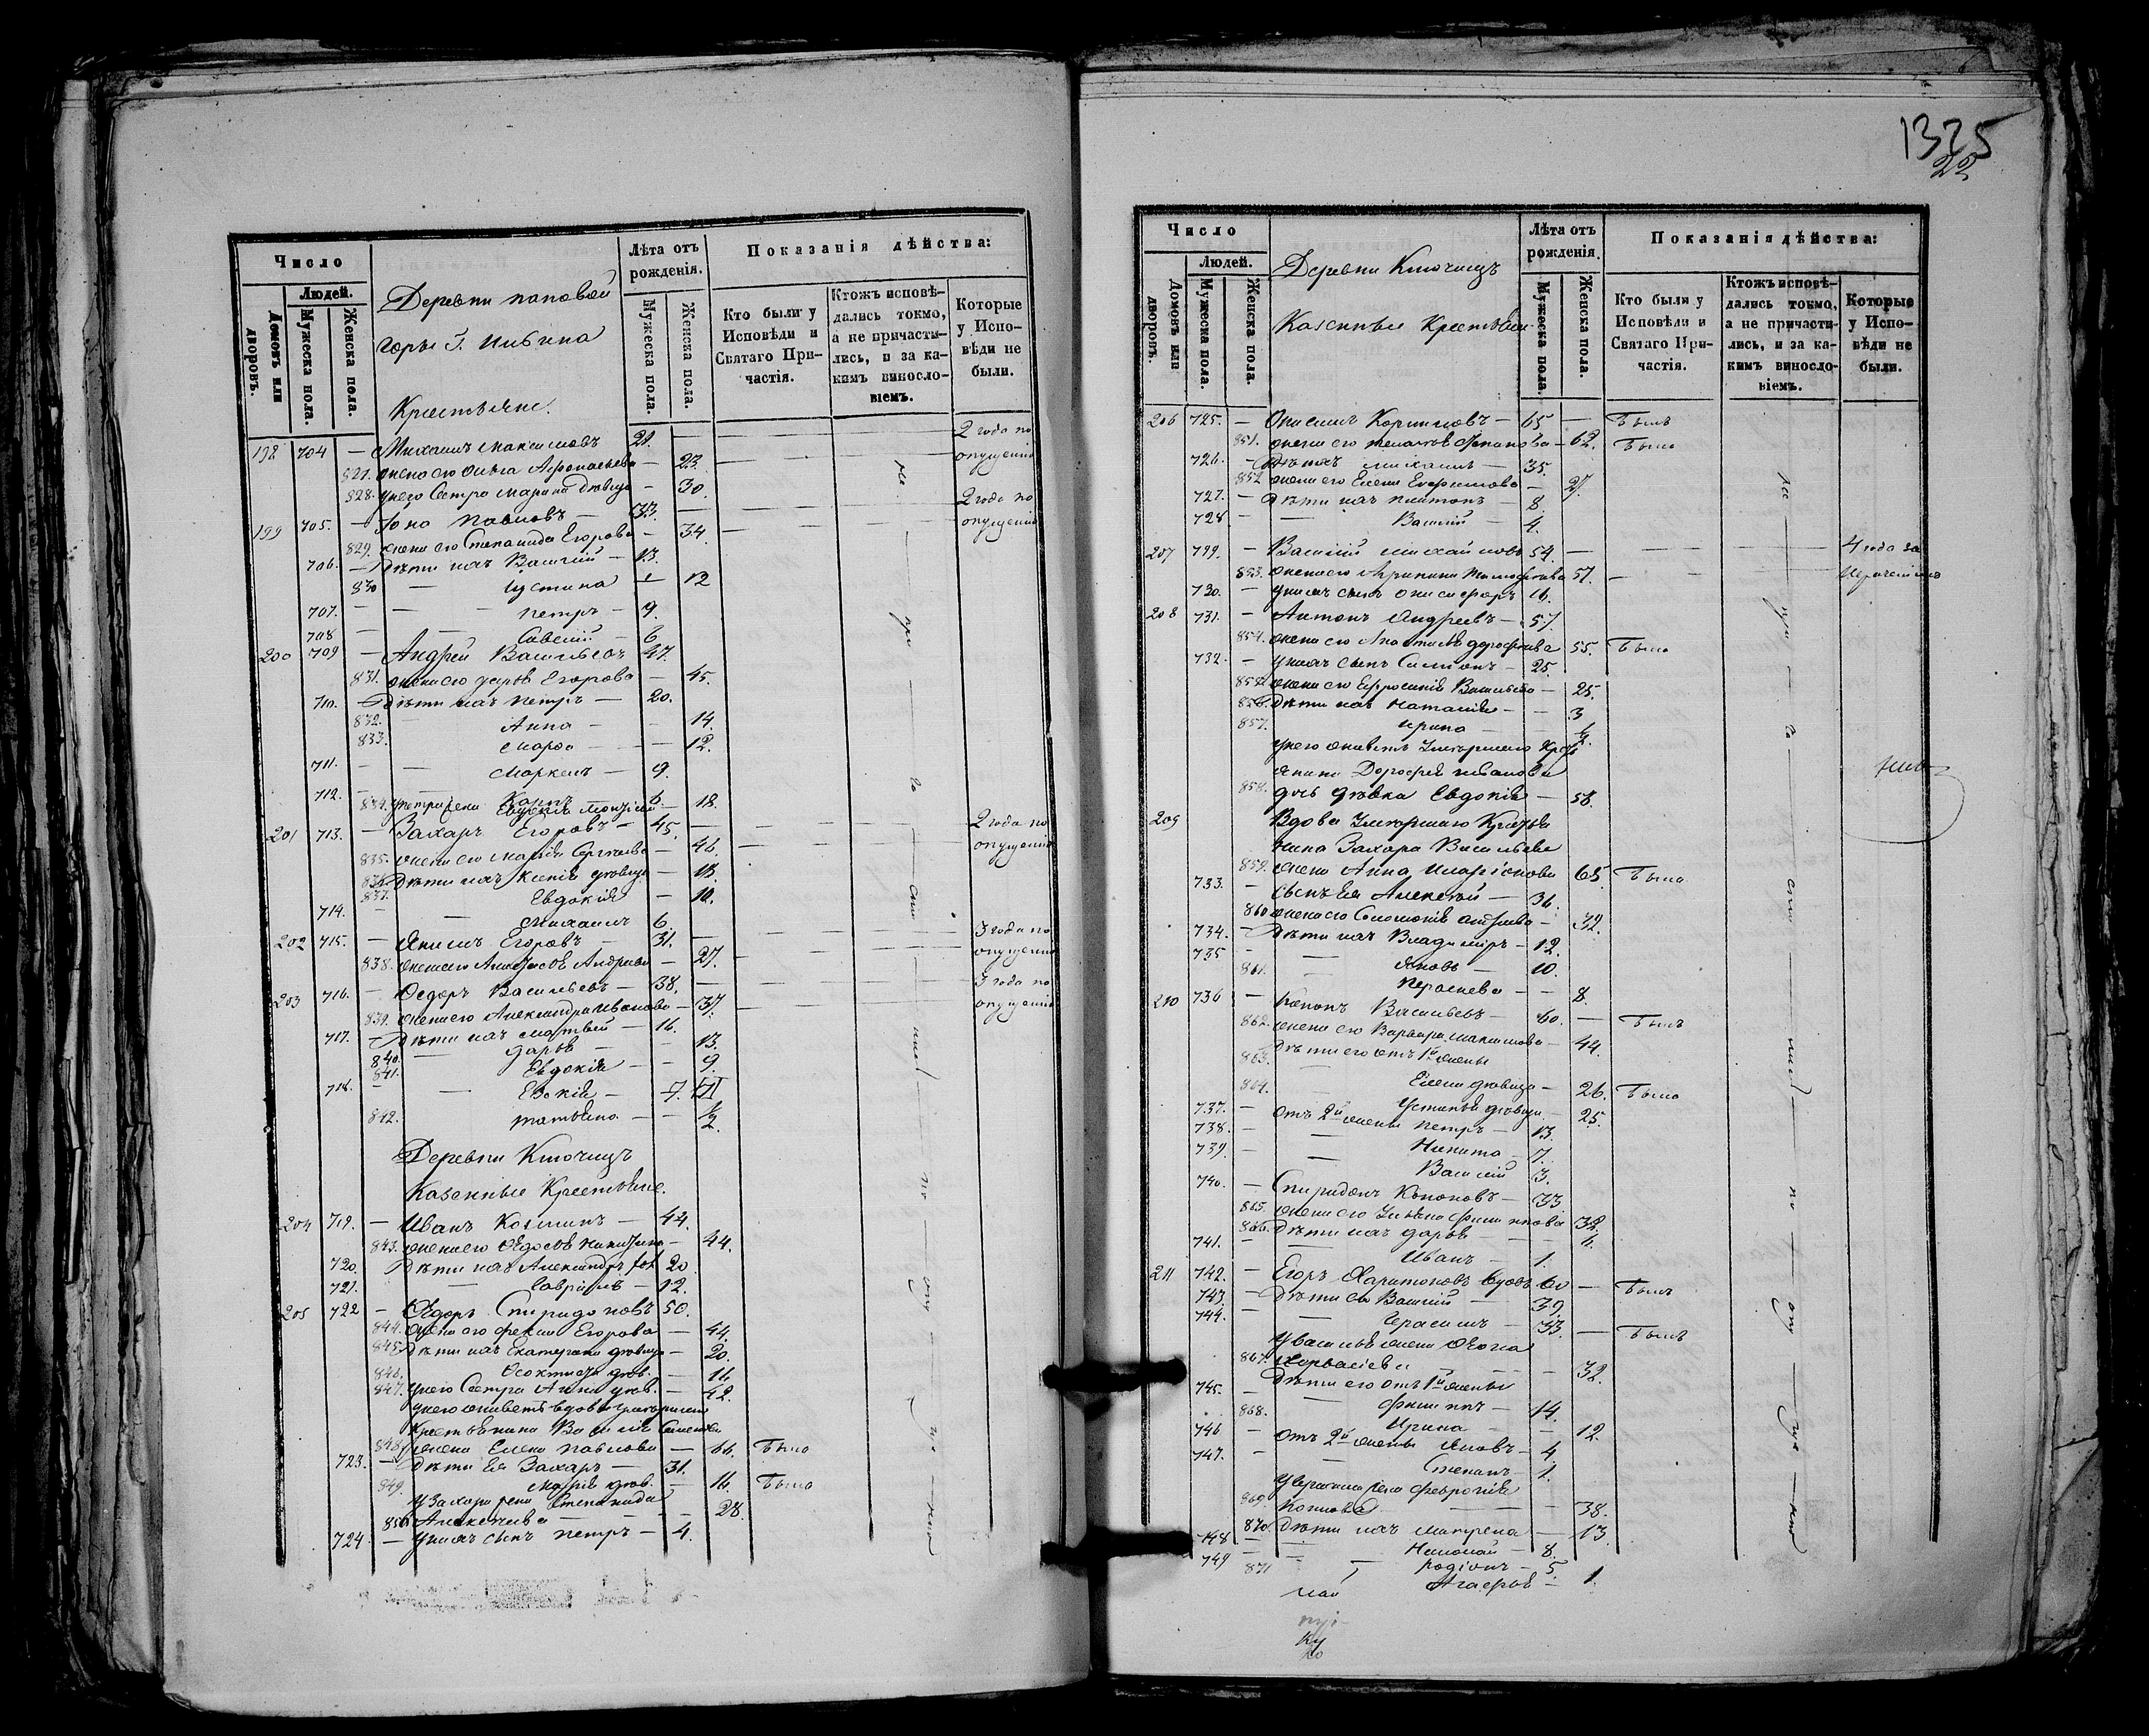 Число
Людей.
Домовъ или дворовъ.
Мужеска пола.
Женска пола.
Деревни паповой
горы Г.
Крестьяне.
Лѣта отъ рожденія.
Мужеска пола.
Женска пола.
Показанія дѣйства:
Кто были у Исповѣди и Святаго Причастія.
Ктожъ исповѣдались токмо, а не причастились, и за какимъ винословіемъ.
Которые у Исповѣди не были.
198 704 — Михаилъ Максимовъ 21. — — 2 года по
827. жена его Ольга Афонасьева — 23. — — опущенію
828. у него Сестра Марина дѣвица — 30.
199 705. — Іона Павловъ — 33. — — 2 года по
829. жена его Степанида Егорова — 34. — — опущенію
706. — Дѣти ихъ Василій — 13.
830 — Іустина — 12
707. — — Петръ — 9.
708 — — Савелій — 6
200 709 — Андрей Васильевъ 47.
831. жена его Дарья Егорова — 45.
710. — Дѣти ихъ Петръ — 20.
832. — Анна — — 14.
833. Марѳа — — 12.
711. — — Маркелъ — 9.
712. — — Карпъ 6.
834. у Петра жена — 18.
201 713. — Захаръ Егоровъ — 45. — — 2 года по
835. жена его Марія Сергѣева — 46. — — опущенію
836. Дѣти ихъ Ксенія дѣвица — 18.
837. Евдокія — 10.
714. — — Михаилъ 6.
202 715. — Якимъ Егоровъ — 31. — — 3 года по
838. жена его Андреева — 27. — — опущенію
203 716. — Ѳедоръ Васильевъ — 38. — — 3 года по
839. жена его Александра Иванова — 37. — опущенію
717. — Дѣти ихъ Матвей — 16.
840. — Дарья — — 13.
841. Евдокія — — 9.
718. — — — 7.
842. Татьяна — — ½
Деревни Ключищъ
Казенные Крестьяне.
204 719. — Иванъ Козминъ — 44.
843. жена его Ѳедосья Никитина — 44.
720. Дѣти ихъ Александръ 20
721. — Гавріилъ — 12.
205 722 — Ѳедоръ Спиридоновъ 50.
844. жена его Фекла Егорова — 44.
845. Дѣти ихъ Екатерина дѣвица — 20.
846. Ѳеоктиста дѣв. — 16
847. у него Сестра Анна дѣв. — 42.
у него живетъ вдова умершаго
Крестьянина Василія Семенова
848. жена Елена Павлова — 66. Была
723. — Дѣти Ея Захаръ — 31.
849. Марія дѣв. — 16. Была
у Захара жена Степанида
850 Алексѣева — — — 28.
724. — у нихъ сынъ Петръ — 4.
1325
22
Число
Людей.
Домовъ или дворовъ.
Мужеска пола.
Женска пола.
Деревни Ключищъ
Казенные Крестьяне
Лѣта отъ рожденія.
Мужеска пола.
Женска пола.
Показанія дѣйства:
Кто были у Исповѣди и Святаго Причастія.
Ктожъ исповѣдались токмо, а не причастились, и за какимъ винословіемъ.
Которые у Исповѣди не были.
206 725. — Корниловъ — 65 — Былъ
851. жена его — 62. Была
726. — Сынъ ихъ Михаилъ — 35.
852 жена его Елена Ефимова — 27.
727. — Дѣти ихъ Платонъ — 8.
728 — — Василій — 4.
207 729. — Василій Михайловъ 54. — — 4 года за
853. жена его Агрипина Тимофеева 57. — нерачениемъ
730. — у нихъ сынъ Онисифоръ 16.
208 731. — Антонъ Андреевъ — 57.
854. жена его Анастасія Дорофеева 55. Была
732. — у нихъ сынъ — 25.
855 жена его Ефросинія Васильева — 25.
856. Дѣти ихъ Наталія — — 3
857. Ирина — —
у него живетъ умершаго Крест
янина Дорофея Иванова
858. дочь дѣвка Евдокія — 58.
209 Вдова умершаго Крестья
нина Захара Васильева
859. жена Анна Иларіонова 65. Была
733. — Сынъ Ея Алексѣй — 36.
860 жена его Соломонія — 32.
734. — Дѣти ихъ Владиміръ — 12.
735 — Яковъ — 10.
861. Парасковія — — 8.
210 736 — Кононъ Васильевъ — 60. — Былъ
862. жена его Варвара Максимова — 44.
Дѣти его отъ 1й жены
863. Елена дѣвица — 26. Была
864. Устинья дѣвица — 25.
737. — отъ 2й жены Петръ — 13.
738. — — Никита — 7.
739. — — Василій 3.
740. — Спиридонъ Кононовъ — 33
865. жена его Ульяна Филиппова 32.
866. Дѣти ихъ Дарья — — 6.
741. — — Иванъ — 1.
211 742. — Егоръ Харитоновъ вдовъ 60 — Былъ
743. — Дѣти его Василій — 39.
744. — — Герасимъ — 33. — Былъ
у Василья жена Ѳекла
867. — — — 32.
Дѣти его отъ 1й жены
745. — — Филиппъ — 14.
868. Ирина — — 12.
746 — отъ 2й жены Яковъ — 4.
747. — — Степанъ — 1.
у Герасима жена Февронія
869. — — 38.
870. Дѣти ихъ Матрена — 13
748 — — Николай — 8.
749 — — Родіонъ — 5.
871 Агафья — 1.